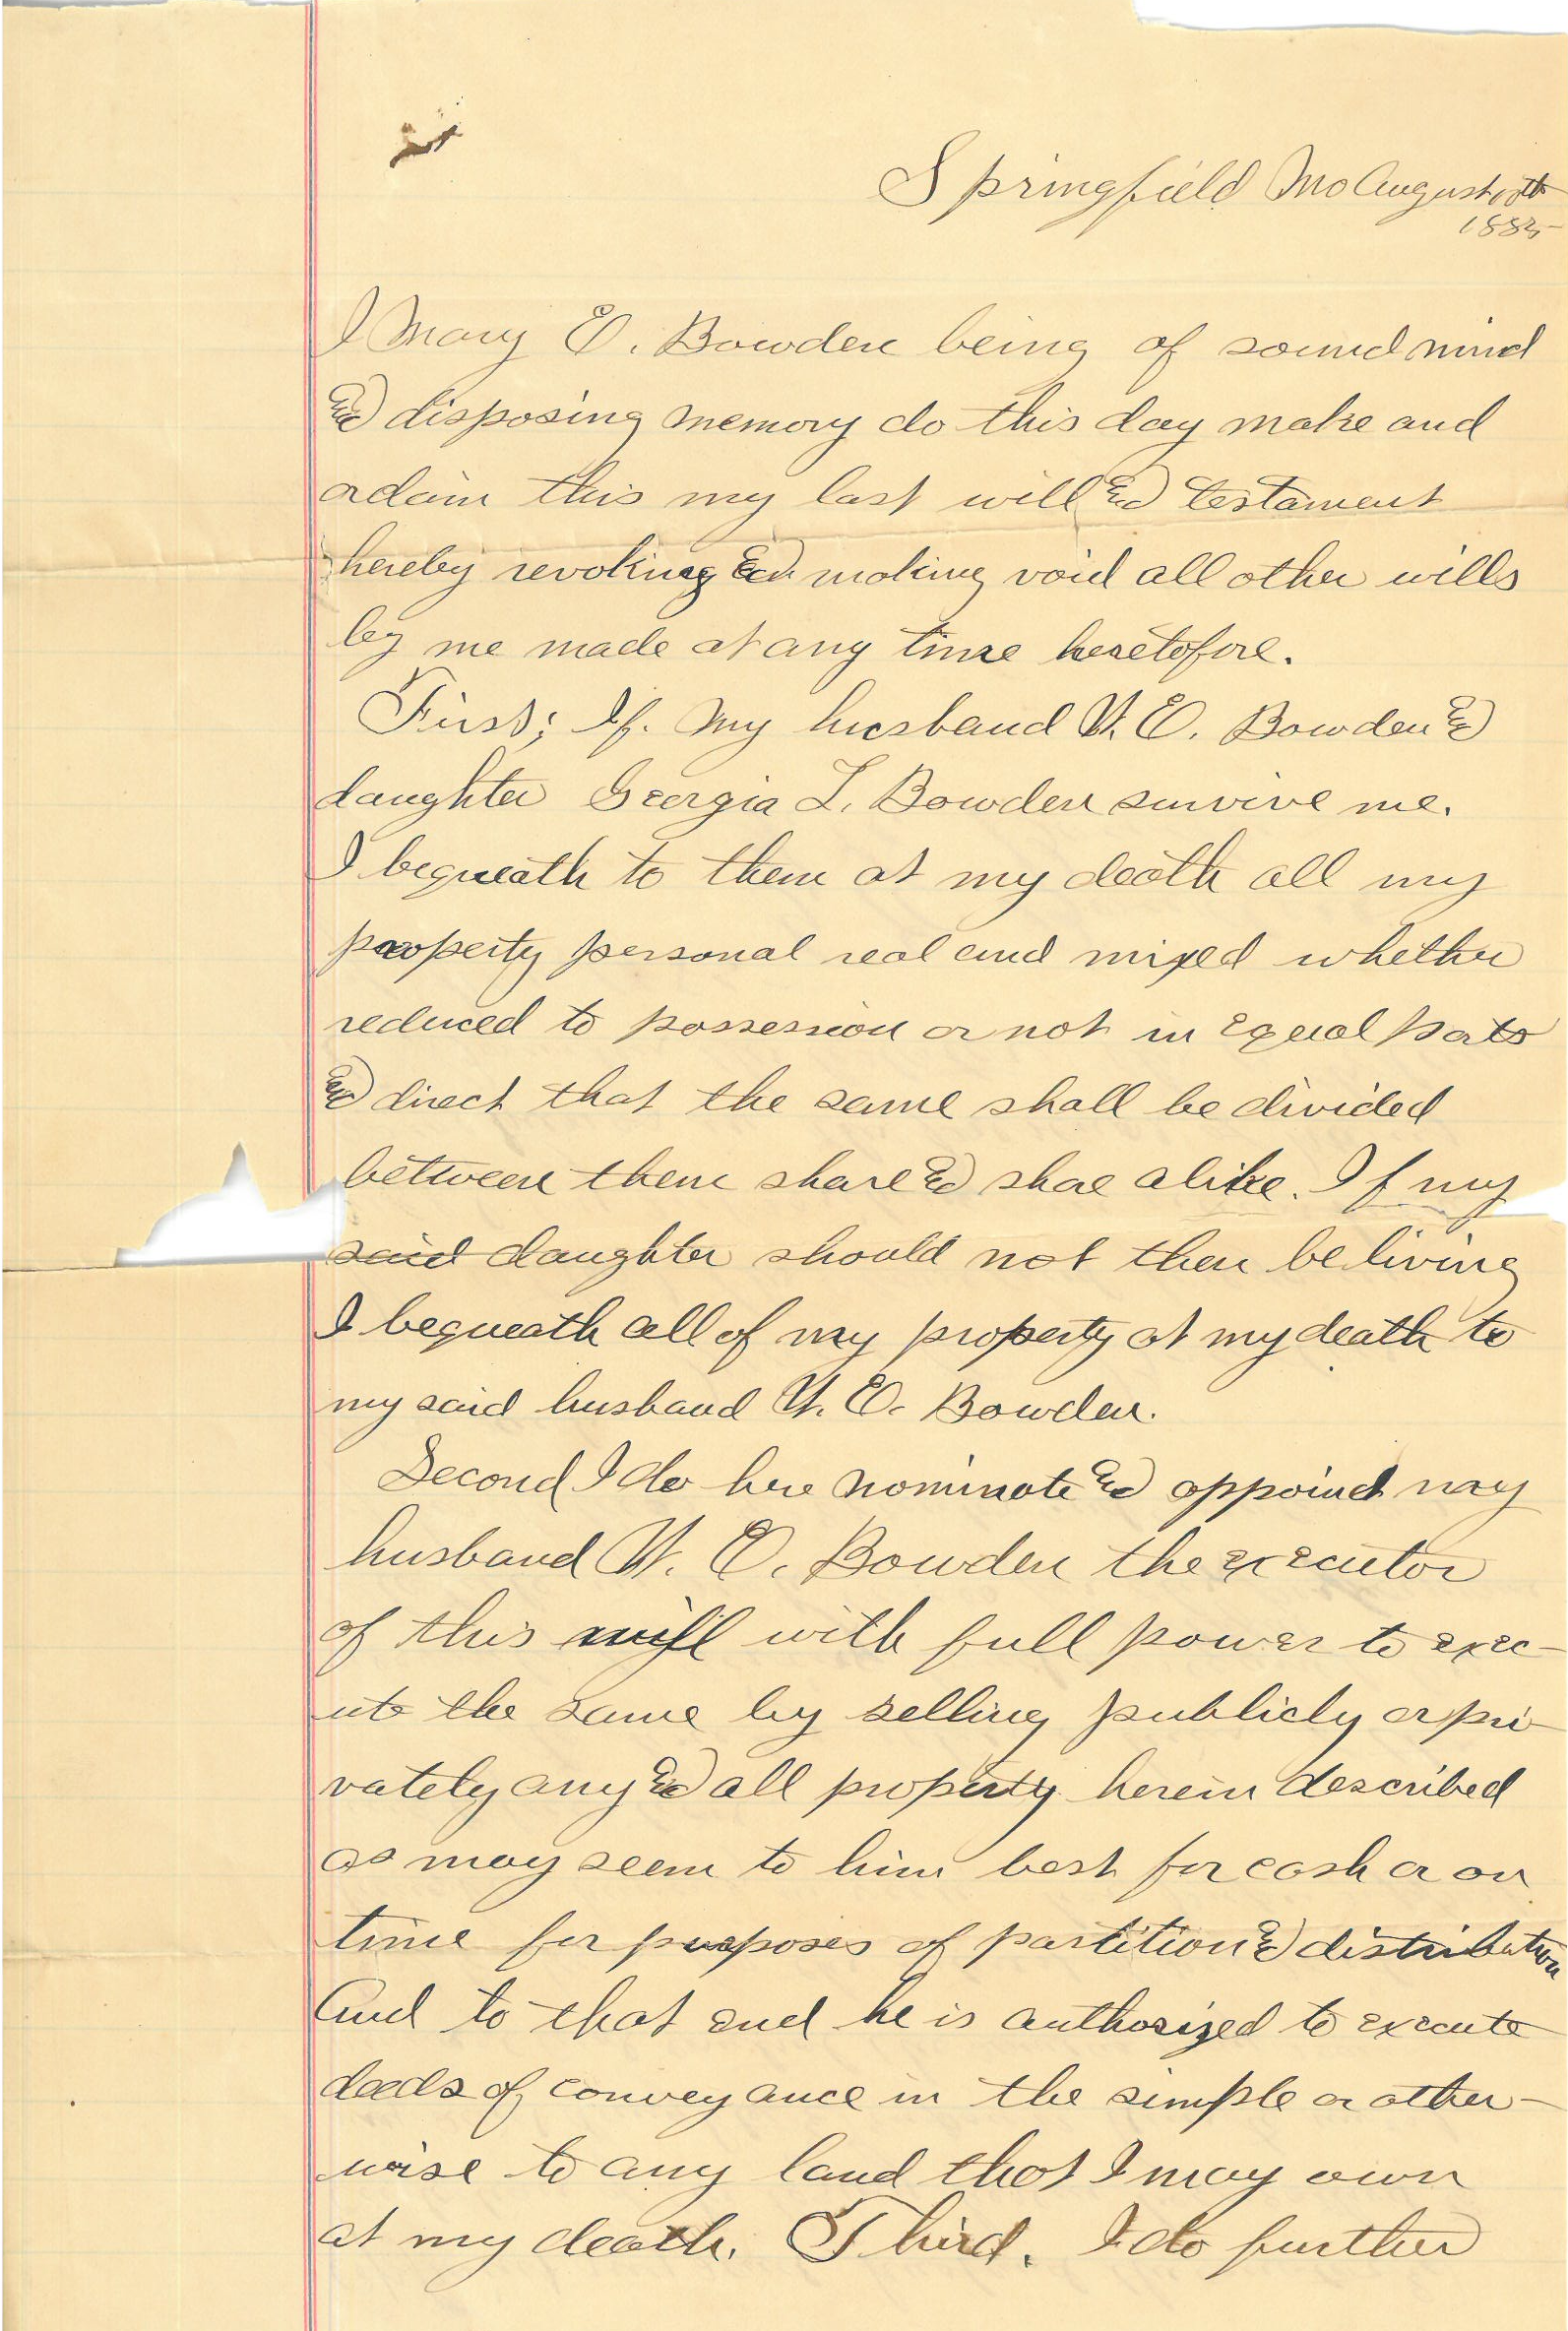 Springfield Mo August
1885
I Mary E. Bowden being of sound mind
& disposing memory do this day make and
ordain this my last will & testament
hereby revoking & making void all other wills
by me made at any time heretofore.
First; If. my husband W. E. Bowden &
daughter Georgia L. Bowden survive me.
I bequeath to them at my death all my
property personal real and mixed whether
reduced to possession or not in equal parts
& direct that the same shall be divided
between them share & shae alike. If my
said daughter should not then be living
I bequeath all of my property at my death to
my said husband W. E. Bowden.
Second I do here nominate & appoint my
husband W. E. Bowden the executor
of this will with full power to exec-
ute the same by selling publicly or pri-
vately any & all property herein described
as may seem to him best for cash or on
time for purposes of partition & distribution
And to that end he is authorized to execute
deeds of conveyance in the simple or other-
wise to any land that I may own
at my death. Third. I do further